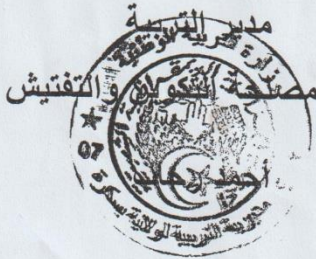 مدير التربية
مصلحة التكوين والتفتيش
وزارة التربية الوطنية
مديرية التربية لولاية بسكرة
07